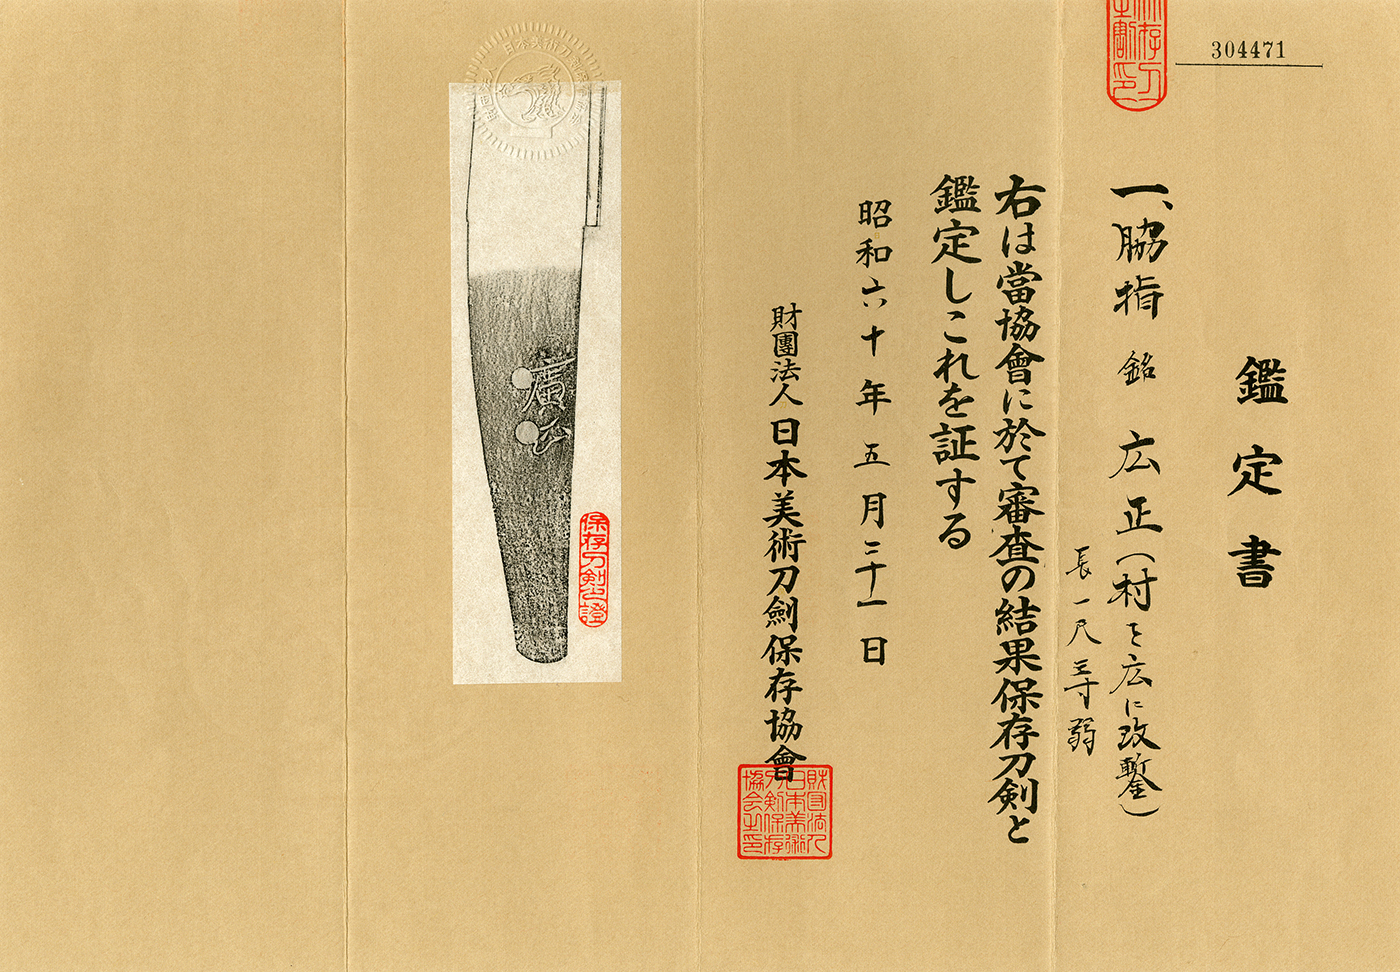 304471
鑑定書
一、脇指 銘 広正(村を広に改鏨)
長一尺三寸弱
右は當協會に於て審査の結果保存刀剣と
鑑定しこれを証する
昭和六十年五月三十一日
財團法人日本美術刀劍保存協會
財団法人
日本美術
刀剣保存
協会之印
廣正
保存刀剣之證